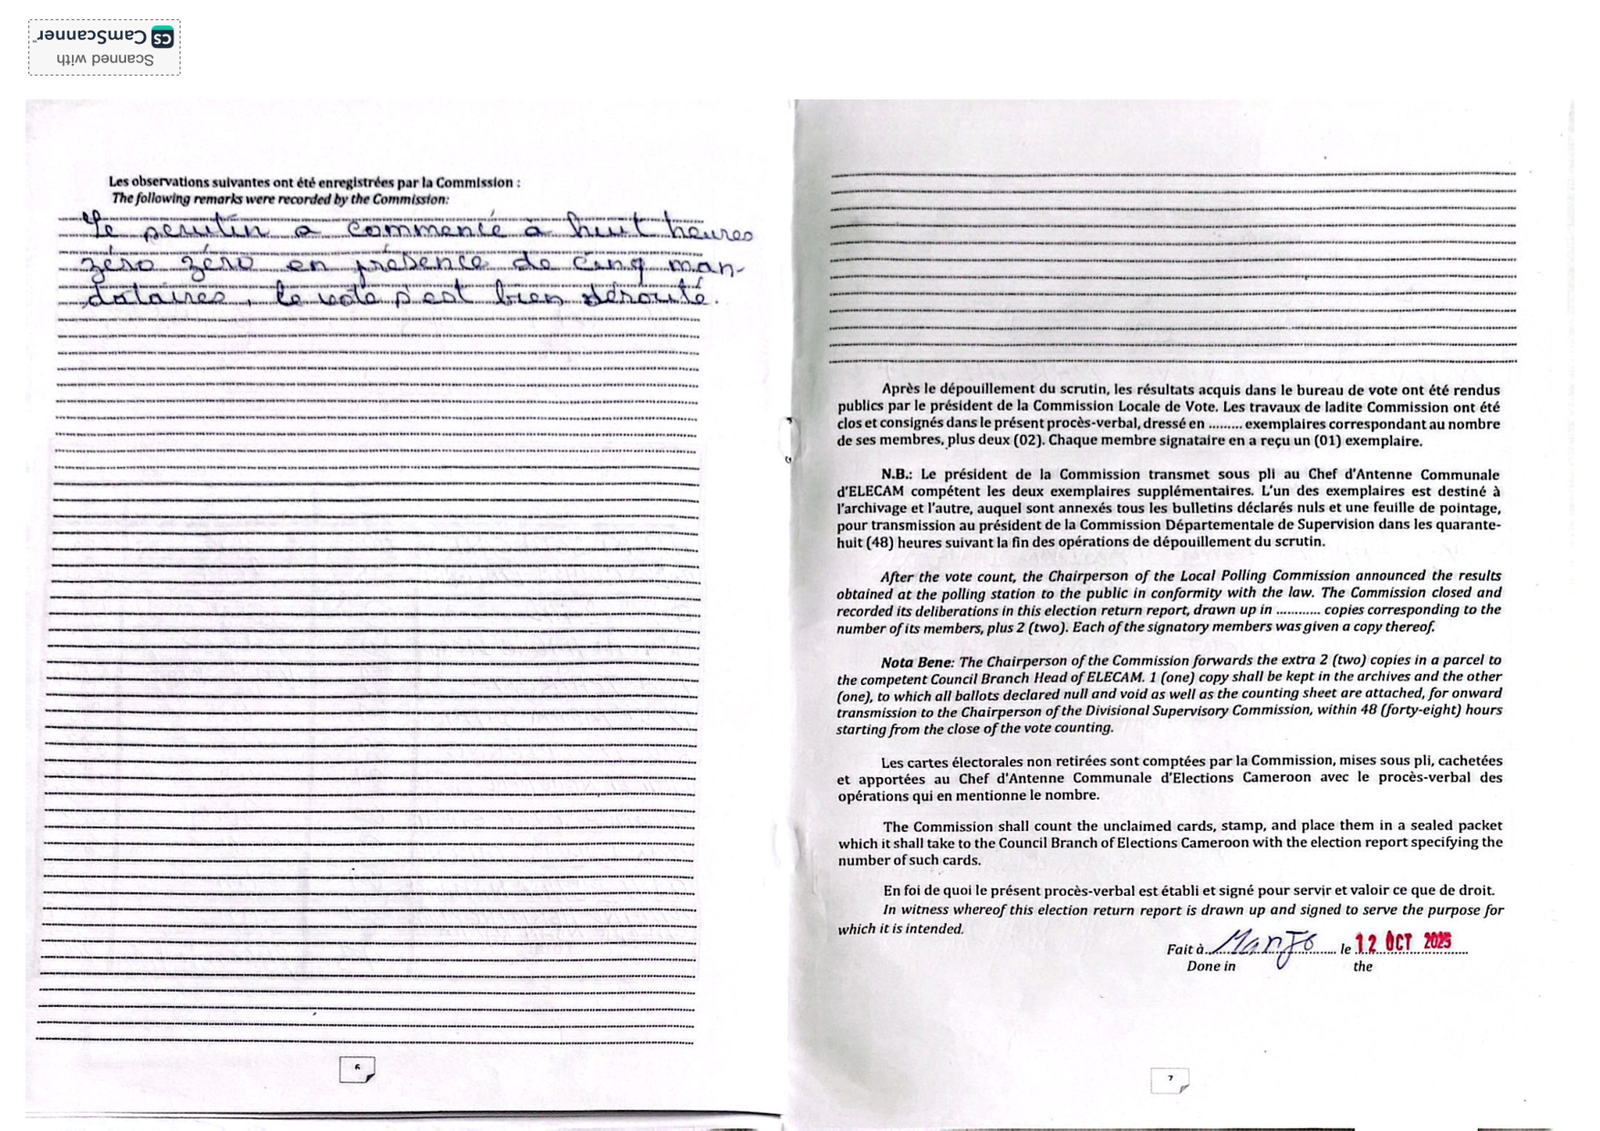 Scanned with
CS CamScanner
Les observations suivantes ont été enregistrées par la Commission :
The following remarks were recorded by the Commission:
Le scrutin a commencé à huit heures
zéro zéro en présence de cinq man-
dataires, le vote s'est bien dérouté.
6
Après le dépouillement du scrutin, les résultats acquis dans le bureau de vote ont été rendus
publics par le président de la Commission Locale de Vote. Les travaux de ladite Commission ont été
clos et consignés dans le présent procès-verbal, dressé en ......... exemplaires correspondant au nombre
de ses membres, plus deux (02). Chaque membre signataire en a reçu un (01) exemplaire.
N.B.: Le président de la Commission transmet sous pli au Chef d'Antenne Communale
d'ELECAM compétent les deux exemplaires supplémentaires. L'un des exemplaires est destiné à
l'archivage et l'autre, auquel sont annexés tous les bulletins déclarés nuls et une feuille de pointage,
pour transmission au président de la Commission Départementale de Supervision dans les quarante-
huit (48) heures suivant la fin des opérations de dépouillement du scrutin.
After the vote count, the Chairperson of the Local Polling Commission announced the results
obtained at the polling station to the public in conformity with the law. The Commission closed and
recorded its deliberations in this election return report, drawn up in ............ copies corresponding to the
number of its members, plus 2 (two). Each of the signatory members was given a copy thereof.
Nota Bene: The Chairperson of the Commission forwards the extra 2 (two) copies in a parcel to
the competent Council Branch Head of ELECAM. 1 (one) copy shall be kept in the archives and the other
(one), to which all ballots declared null and void as well as the counting sheet are attached, for onward
transmission to the Chairperson of the Divisional Supervisory Commission, within 48 (forty-eight) hours
starting from the close of the vote counting.
Les cartes électorales non retirées sont comptées par la Commission, mises sous pli, cachetées
et apportées au Chef d'Antenne Communale d'Elections Cameroon avec le procès-verbal des
opérations qui en mentionne le nombre.
The Commission shall count the unclaimed cards, stamp, and place them in a sealed packet
which it shall take to the Council Branch of Elections Cameroon with the election report specifying the
number of such cards.
En foi de quoi le présent procès-verbal est établi et signé pour servir et valoir ce que de droit.
In witness whereof this election return report is drawn up and signed to serve the purpose for
which it is intended.
Fait à Manjo le 12 OCT 2025
Done in the
7